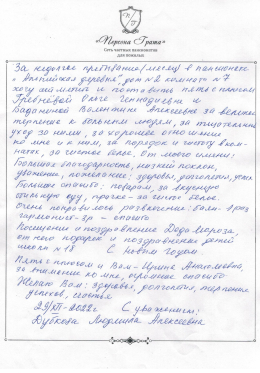 «Персона Грата»
Сеть частных пансионатов
для пожилых
За недолгое пребывание (месяц) в пансионате
"Английская деревня", дом №2 комната №7
хочу отметить и поставить пять с плюсом
Гребневой Ольге Геннадиевне и
Бадаловой Валентине Алексеевне за
терпение к больным людям, за тщательный
уход за ними, за хорошее отношение
ко мне и к ним, за порядок и чистоту в ком-
натах, за чистое белье. От моего имени:
Большая благодарность, низкий поклон,
уважение, пожелание: здоровья, долголетия,
Большое спасибо: поварам, за вкусную
еду, прачке - за чистое белье.
Очень понравилось развлечение:
спасибо
Посещение и поздравление Деда Мороза,
от него подарок и поздравление детей
школы №18 С Новым Годом
Пять с плюсом и Вам - Ирина Анатольевна,
за внимание ко мне, огромное спасибо
Желаю Вам: здоровья, долголетия, терпения
успехов, счастья
29/XII-2022г С уважением:
Дубкова Людмила Алексеевна